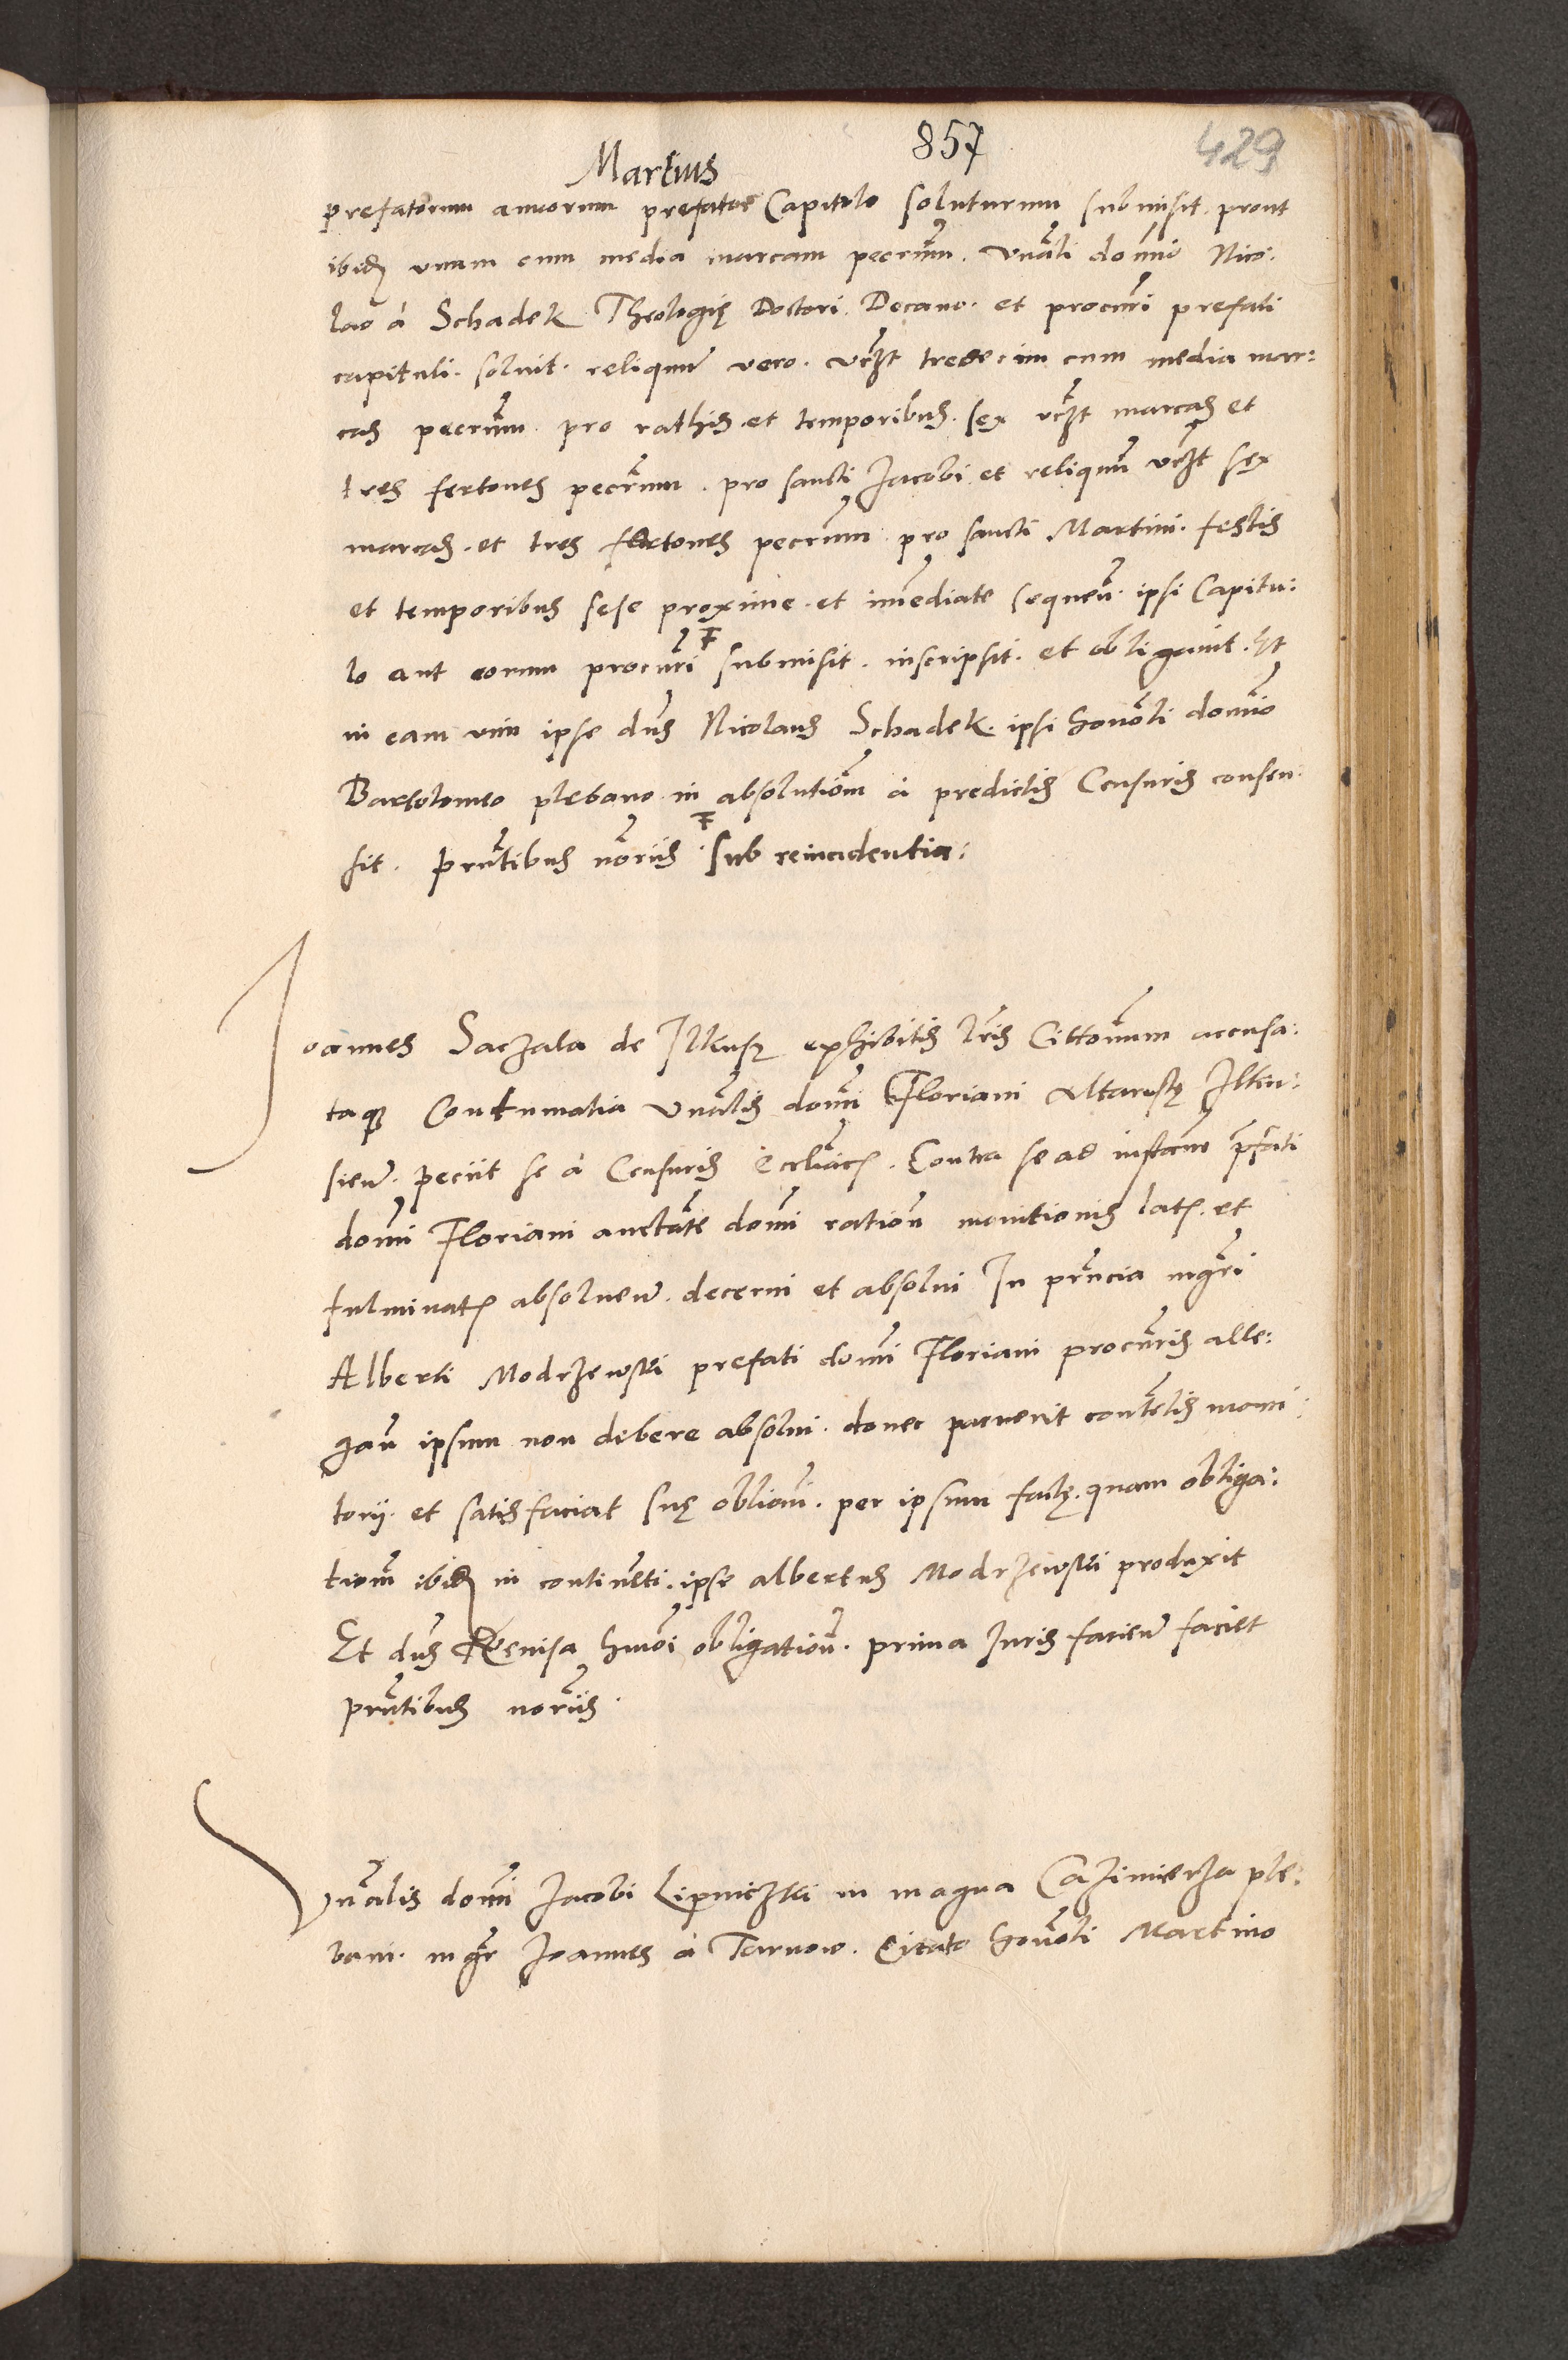 857
429
Martius
prefatorum annorum prefatae Capitulo soluturum submisit. prout
ibidem unum cum media marcam pecunarum. Vnabili domino Nico:
lao à Schadek Theologię Doctori. Decano. et procuratori prefati
capituli. soluit. reliquum vero. videlicet tredecim cum media mar:
cas pecuniarum. pro rathis. et temporibus. sex videlicet marcas et
tres fertones pecuniarum. pro sancti Jacobi et reliquum videlicet sex
marcas. et tres fertones pecuniarum pro sancti Martini. festis
et temporibus sese proxime. et immediate sequen. ipsi Capitu:
lo aut eorum procuratori submisit. inscripsit. et obligauit. Et
in eam vim ipse dns Nicolaus Schadek. ipsi honorabili domino
Bartolomeo plebano in absolutionem à predictis Censuris consen
sit. prntibus noriis. sub reincidentia:
Joannes Saczala de Ilkusz exhibitis lris Cittorum accusa:
taque Contumatia vnalis domini Floriani Altaristę Ilku:
sien. peciit se à Censuris Eccliacis. Contra se ad instanciam prefati
domini Floriani auctate domini ratione monitionis latis. et
fulminatis absoluen. decerni et absolui In prncia mgri
Alberti Modrzewski prefati domini Floriani procuris alle:
gan ipsum non debere absolui. donec paruerit contentis moni:
torii. et satisfaciat suę obliaoni. per ipsum factę. quam obliga:
tionem ibidem in continenti. ipse albertus Modrzewski produxit
Et dns Reuisa humoi obligatione. prima Juris facien faciet
prntibus noriis.
Vnalis domini Jacobi Lipniczki in magna Cazimierza ple:
bani. mgr Joannes à Tarnow. Citato honorabili Martino